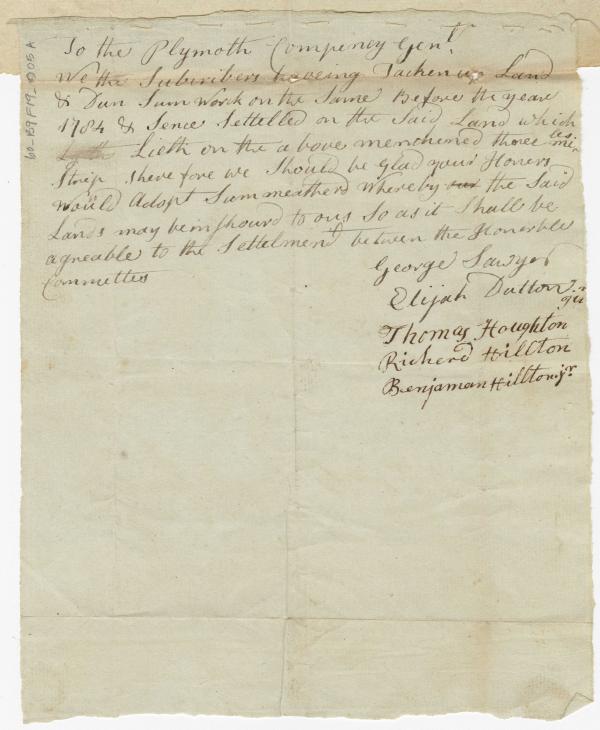 To the Plymoth Compency Gen.l
We the Subscribers haveing Tacken up Land
& Dun Sum Work on the Same Before the year
1784 & Sence Settelled on the Said Land which
Lieth on the above menchoned three mi-
les
Strip therefore we Should be Glad your Honers
Would Adopt Sum meatherd Whereby the Said
Lands may be inshourd to ous So as it Shall be
agreable to the Settelment between the Honerble
Committes
George Sawyer
Elijah Dutton
Thomas Houghton
Richerd Hillton
Benjaman Hillton jr.